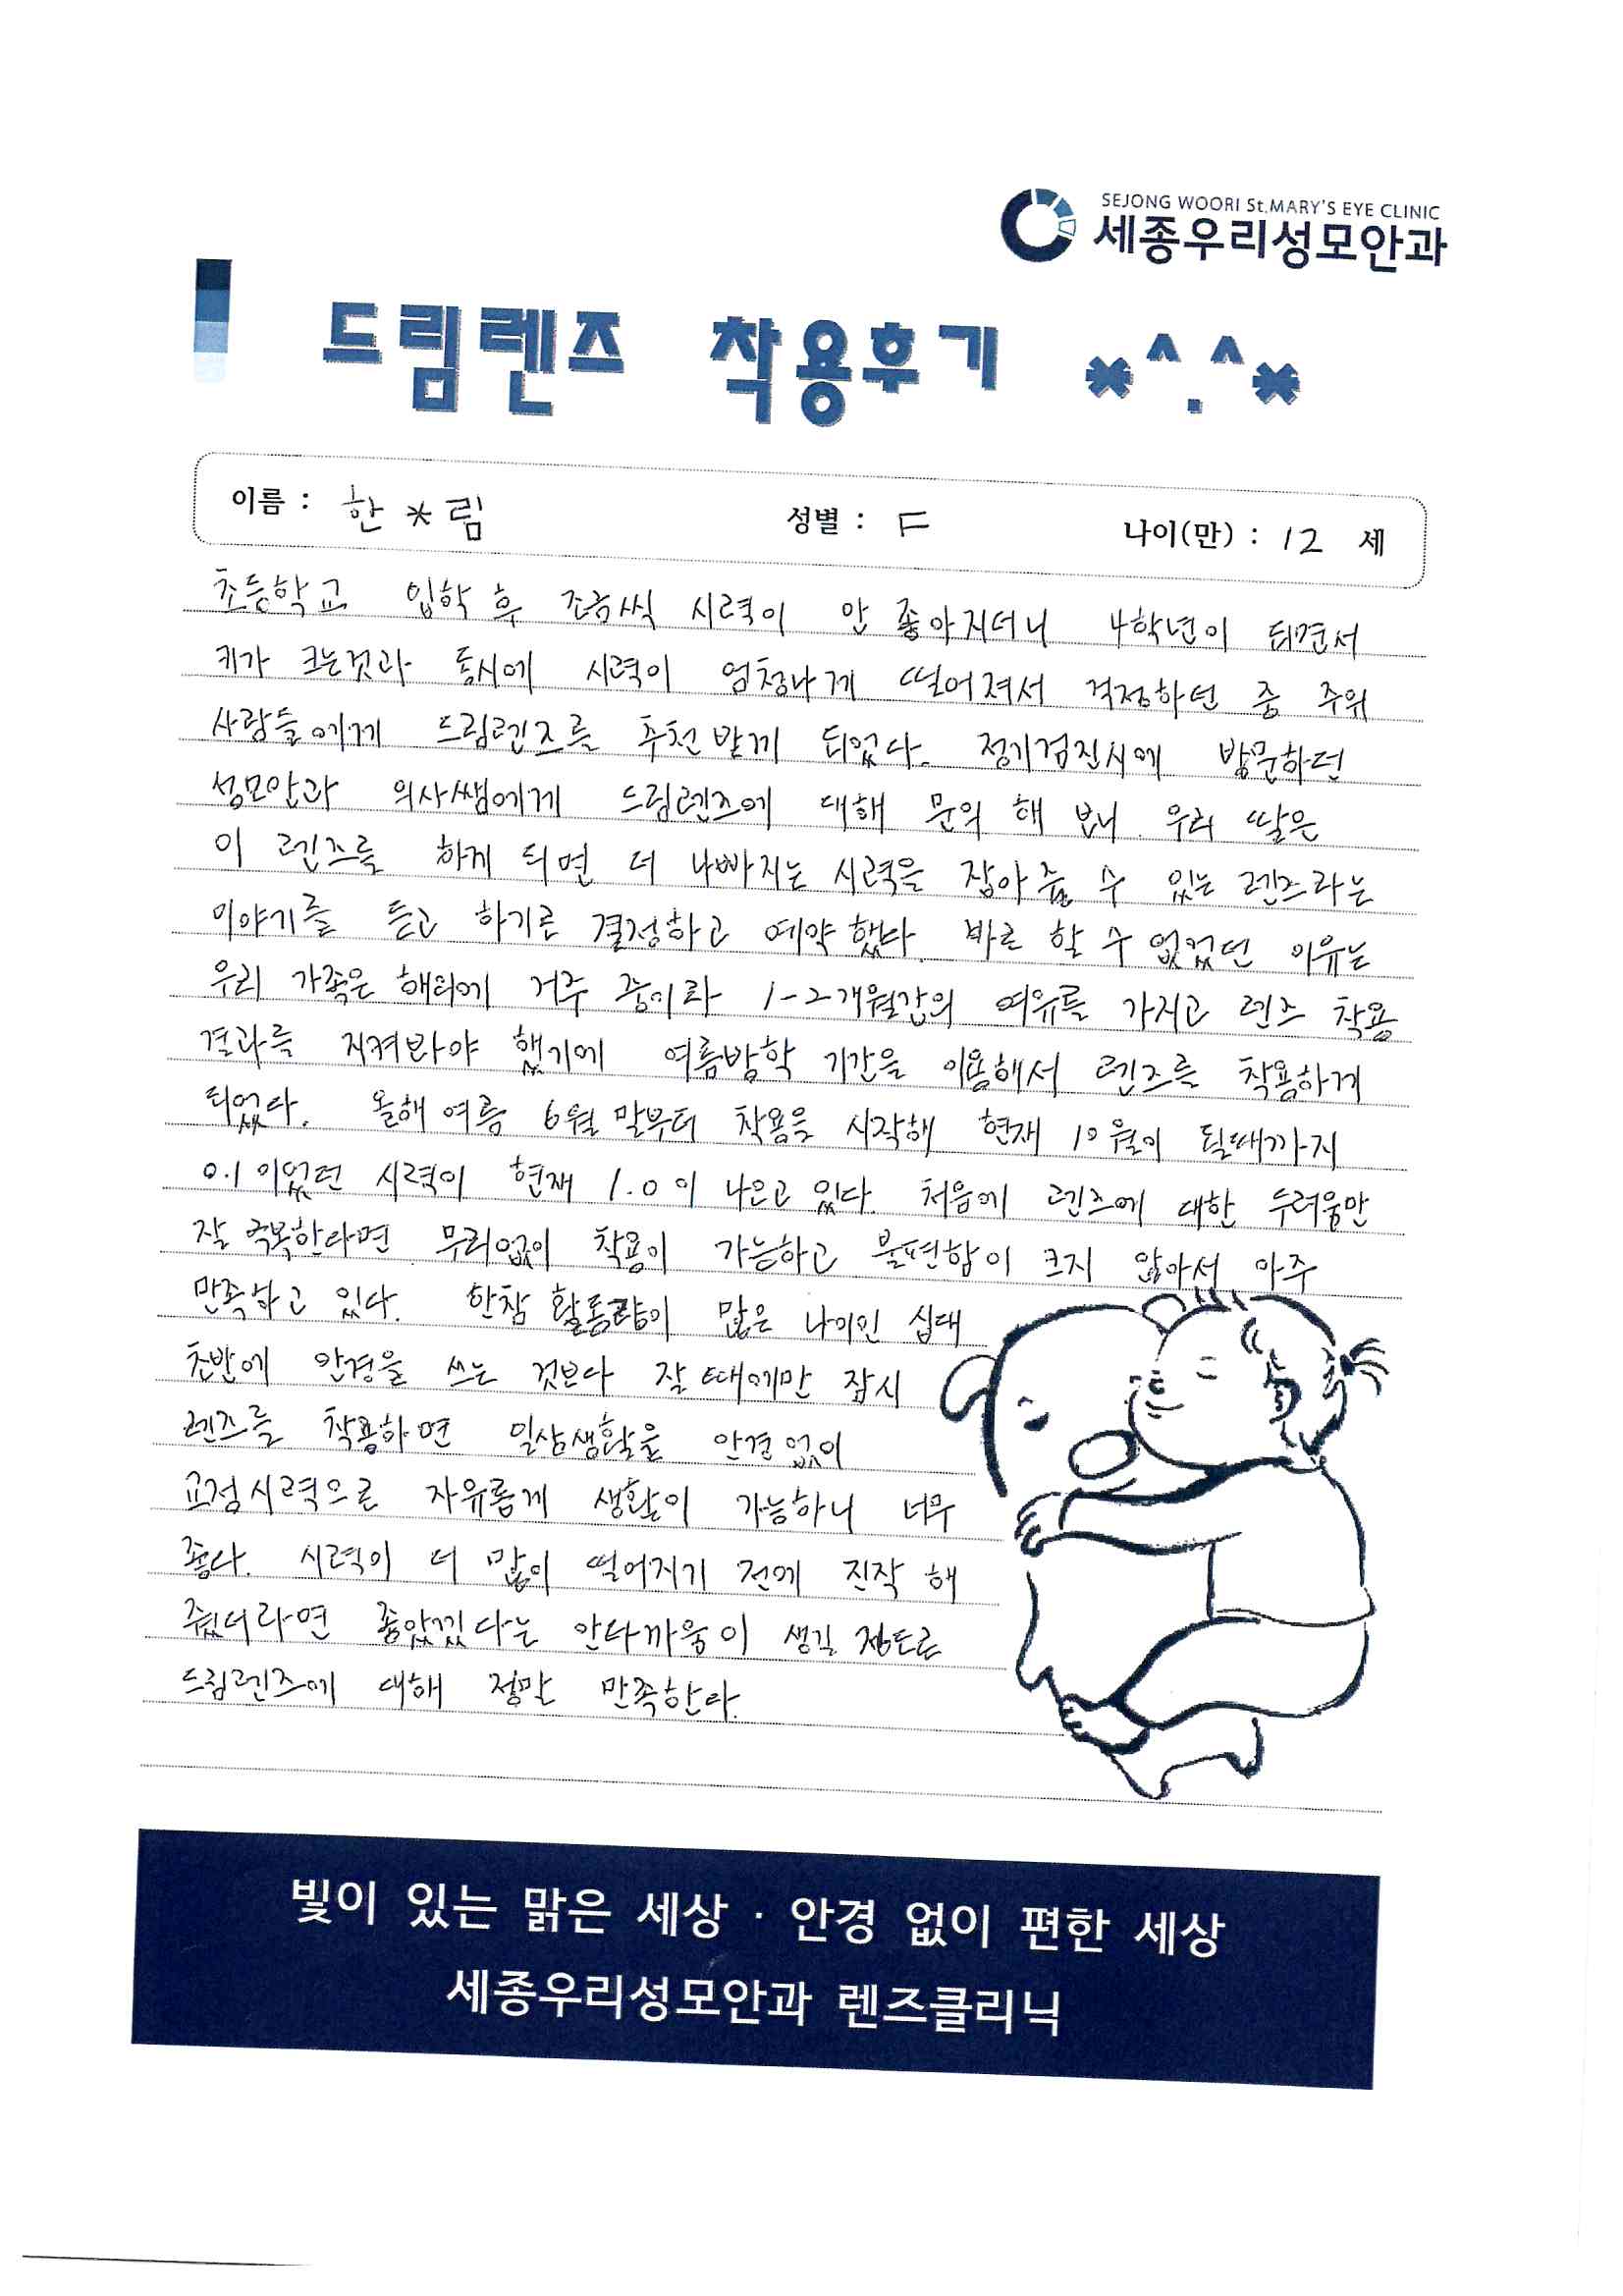 SEJONG WOORI St.MARY'S EYE CLINIC
세종우리성모안과
드림렌즈 착용후기 *^.^*
이름 : 한*림 성별 : F 나이(만) : 12 세
초등학교 입학 후 조금씩 시력이 안 좋아지더니 4학년이 되면서
키가 크는것과 동시에 시력이 엄청나게 떨어져서 걱정하던 중 주위
사람들에게 드림렌즈를 추천받게 되었다. 정기검진시에 방문하던
성모안과 의사쌤에게 드림렌즈에 대해 문의 해 보니 우리 딸은
이 렌즈를 하게 되면 더 나빠지는 시력을 잡아 줄 수 있는 렌즈라는
이야기를 듣고 하기로 결정하고 예약했다. 바로 할 수 없었던 이유는
우리 가족은 해외에 거주 중이라 1-2개월간의 여유를 가지고 렌즈 착용
결과를 지켜봐야 했기에 여름방학 기간을 이용해서 렌즈를 착용하게
되었다. 올해 여름 6월 말부터 착용을 시작해 현재 10월이 될때까지
0.1 이었던 시력이 현재 1.0이 나오고 있다. 처음에 렌즈에 대한 두려움만
잘 극복한다면 무리없이 착용이 가능하고 불편함이 크지 않아서 아주
만족하고 있다. 한참 활동량이 많은 나이인 십대
초반에 안경을 쓰는 것보다 잘 때에만 잠시
렌즈를 착용하면 일상생활을 안경없이
교정시력으로 자유롭게 생활이 가능하니 너무
좋다. 시력이 더 많이 떨어지기 전에 진작 해
줬더라면 좋았겠다는 안타까움이 생길 정도로
드림렌즈에 대해 정말 만족한다.
빛이 있는 맑은 세상 · 안경 없이 편한 세상
세종우리성모안과 렌즈클리닉